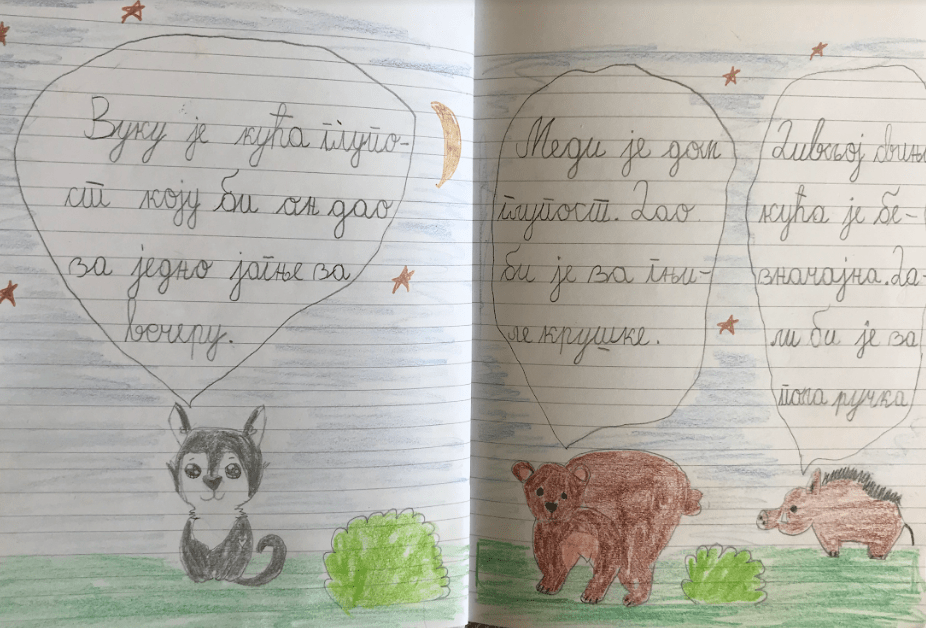 Вуку је кућа глупо-
ст коју би он дао
за једно јагње за
вечеру.
Меди је дом
глупост. Дао
би је за гњи-
ле крушке.
Дивљој свињ
кућа је бе-
значајна. Да-
ли би је за
пола ручка